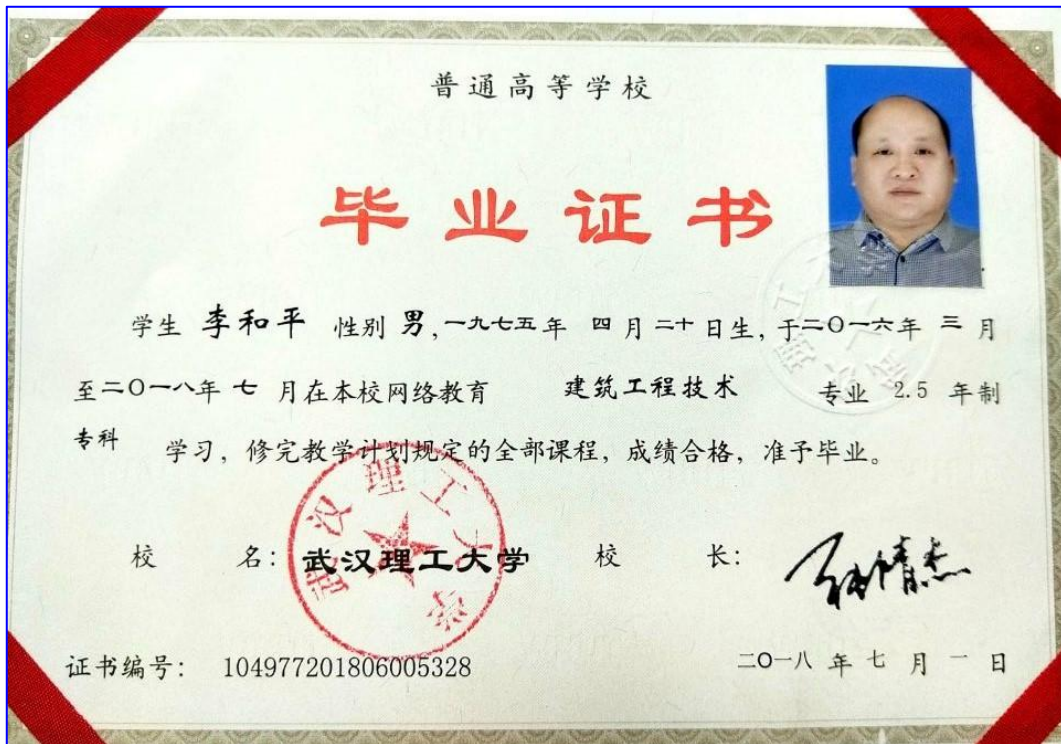 普通高等学校
毕业证书
学生 李和平 性别 男,一九七五年 四月二十日生,于二〇一六年 三月
至二〇一八年 七 月在本校网络教育 建筑工程技术 专业 2.5 年制
专科 学习，修完教学计划规定的全部课程，成绩合格，准予毕业。
武汉理工大学
校 名：武汉理工大学 校 长：
证书编号： 104977201806005328 二〇一八 年 七 月 一 日